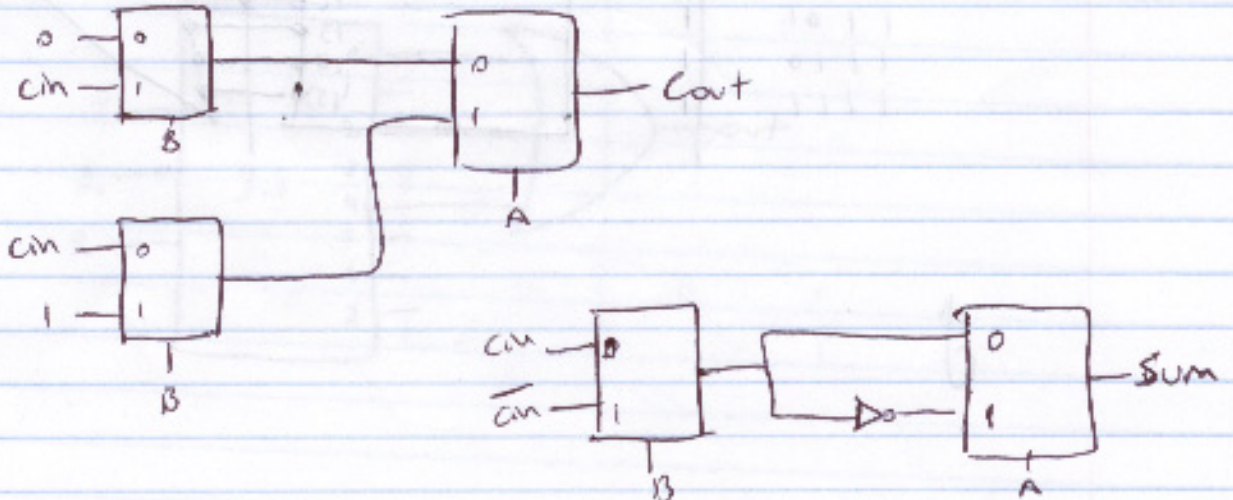 0 0
Cin 1
B
0
1
Cout
A
Cin 0
1 1
B
Cin 0
C̅i̅n̅ 1
B
0
1
Sum
A